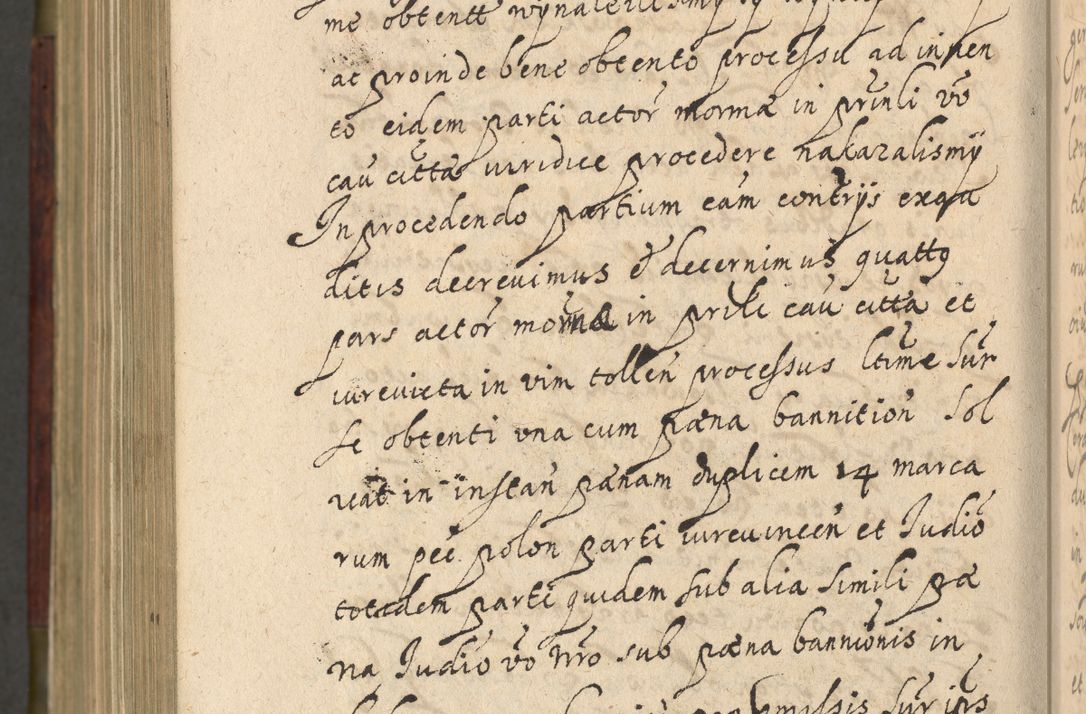 me obtentt wynalezlismy
ac proinde bene obtento processu ad inpen
to eidem parti actor̄ mormæ in prīnli vō
cau citta iuridice procedere nakazalismÿ
In procedendo partium eam contrÿs exqua
ditis decrevimus & decernimus quattꝗ
pars actor̄ mormæ in prīli cau citta et
iurevicta in vim tollen̄ processus ltime sur
se obtenti vna cum pæna bannition̄ sol
vat in instan̄ pænam duplicem 14 marca
rum pec̄ polon parti iurevincen̄ et Iudiō
totidem parti quidem sub alia simili pæ
na Iudiō vō nr̄o sub pæna bannionis in